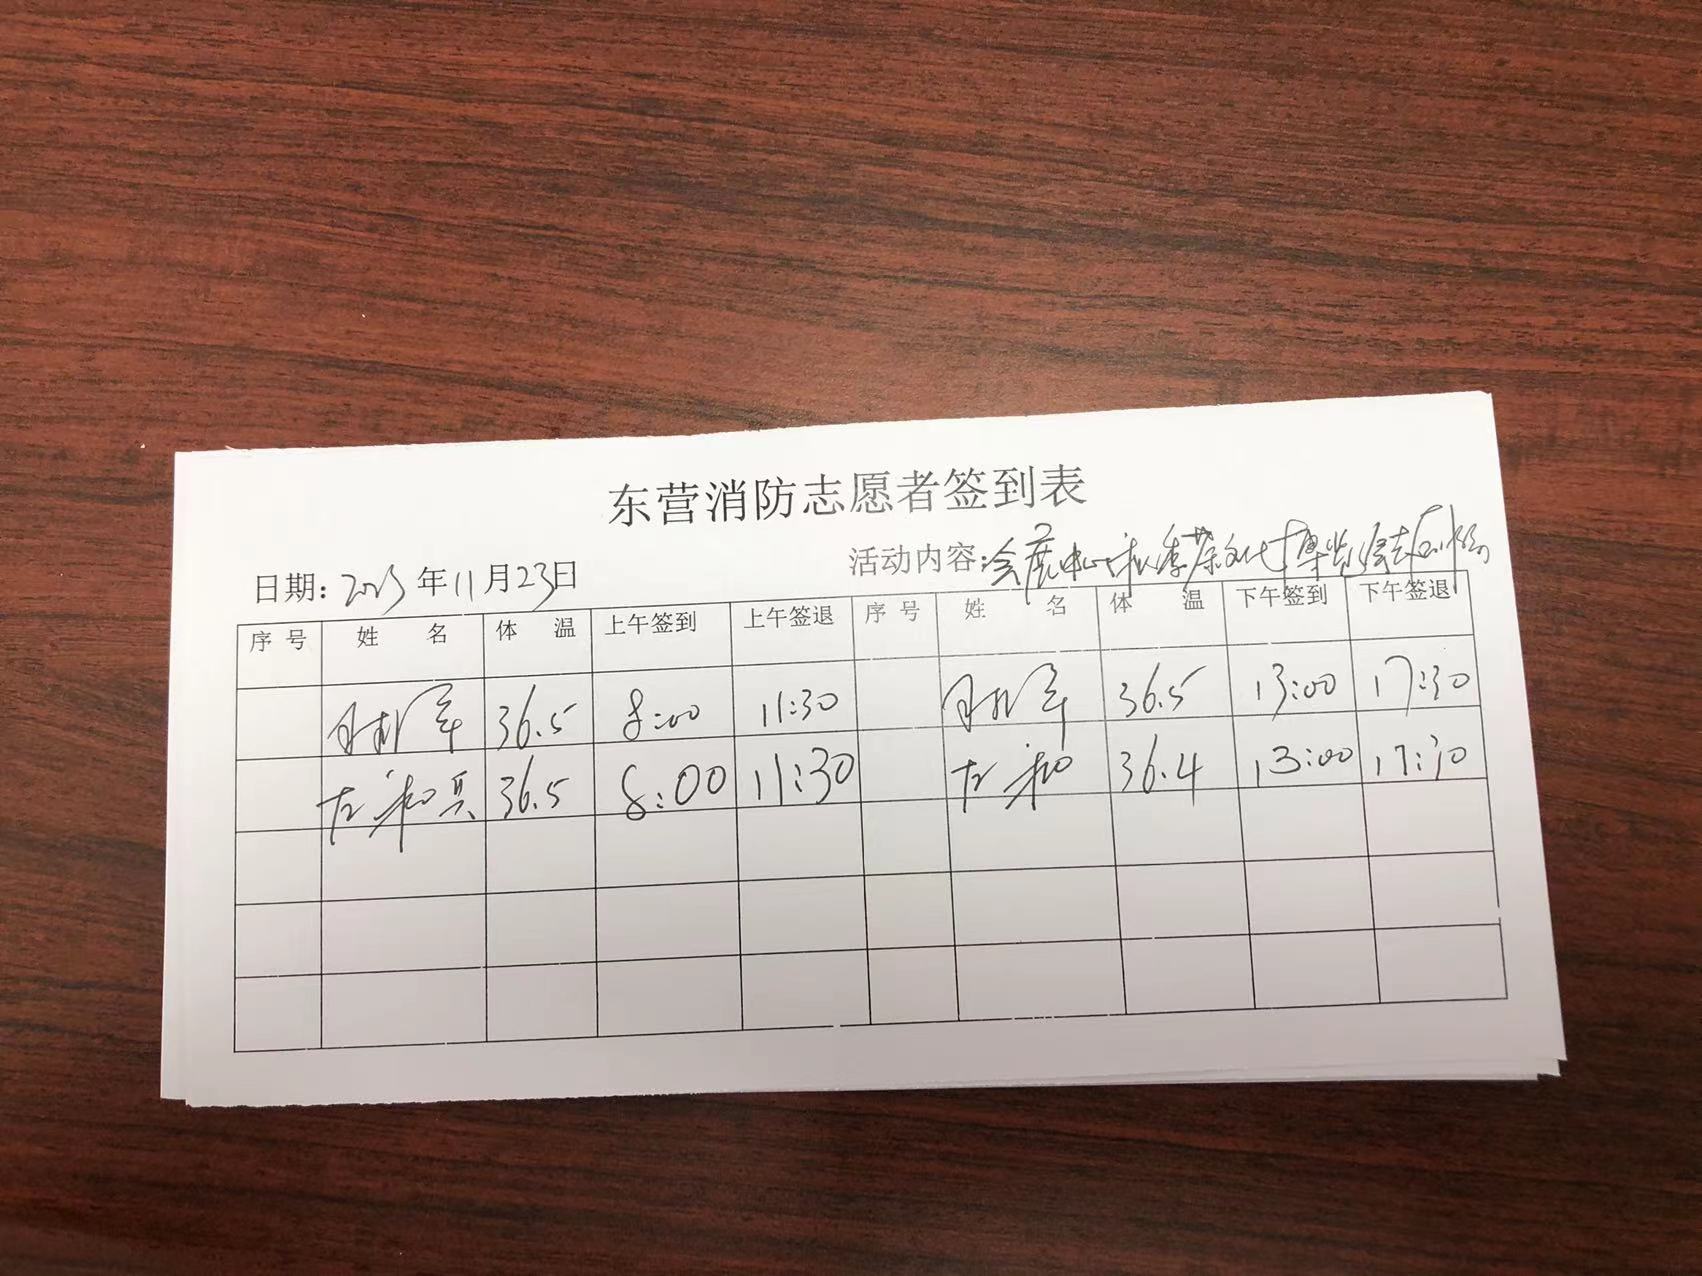 东营消防志愿者签到表
活动内容:会展中心秋季茶文化博览会志愿
日期:2023年11月23日
序号 姓名 体温 上午签到 上午签退 序号 姓名 体温 下午签到 下午签退
36.5 8:00 11:30 36.5 13:00 17:30
36.5 8:00 11:30 36.4 13:00 17:30